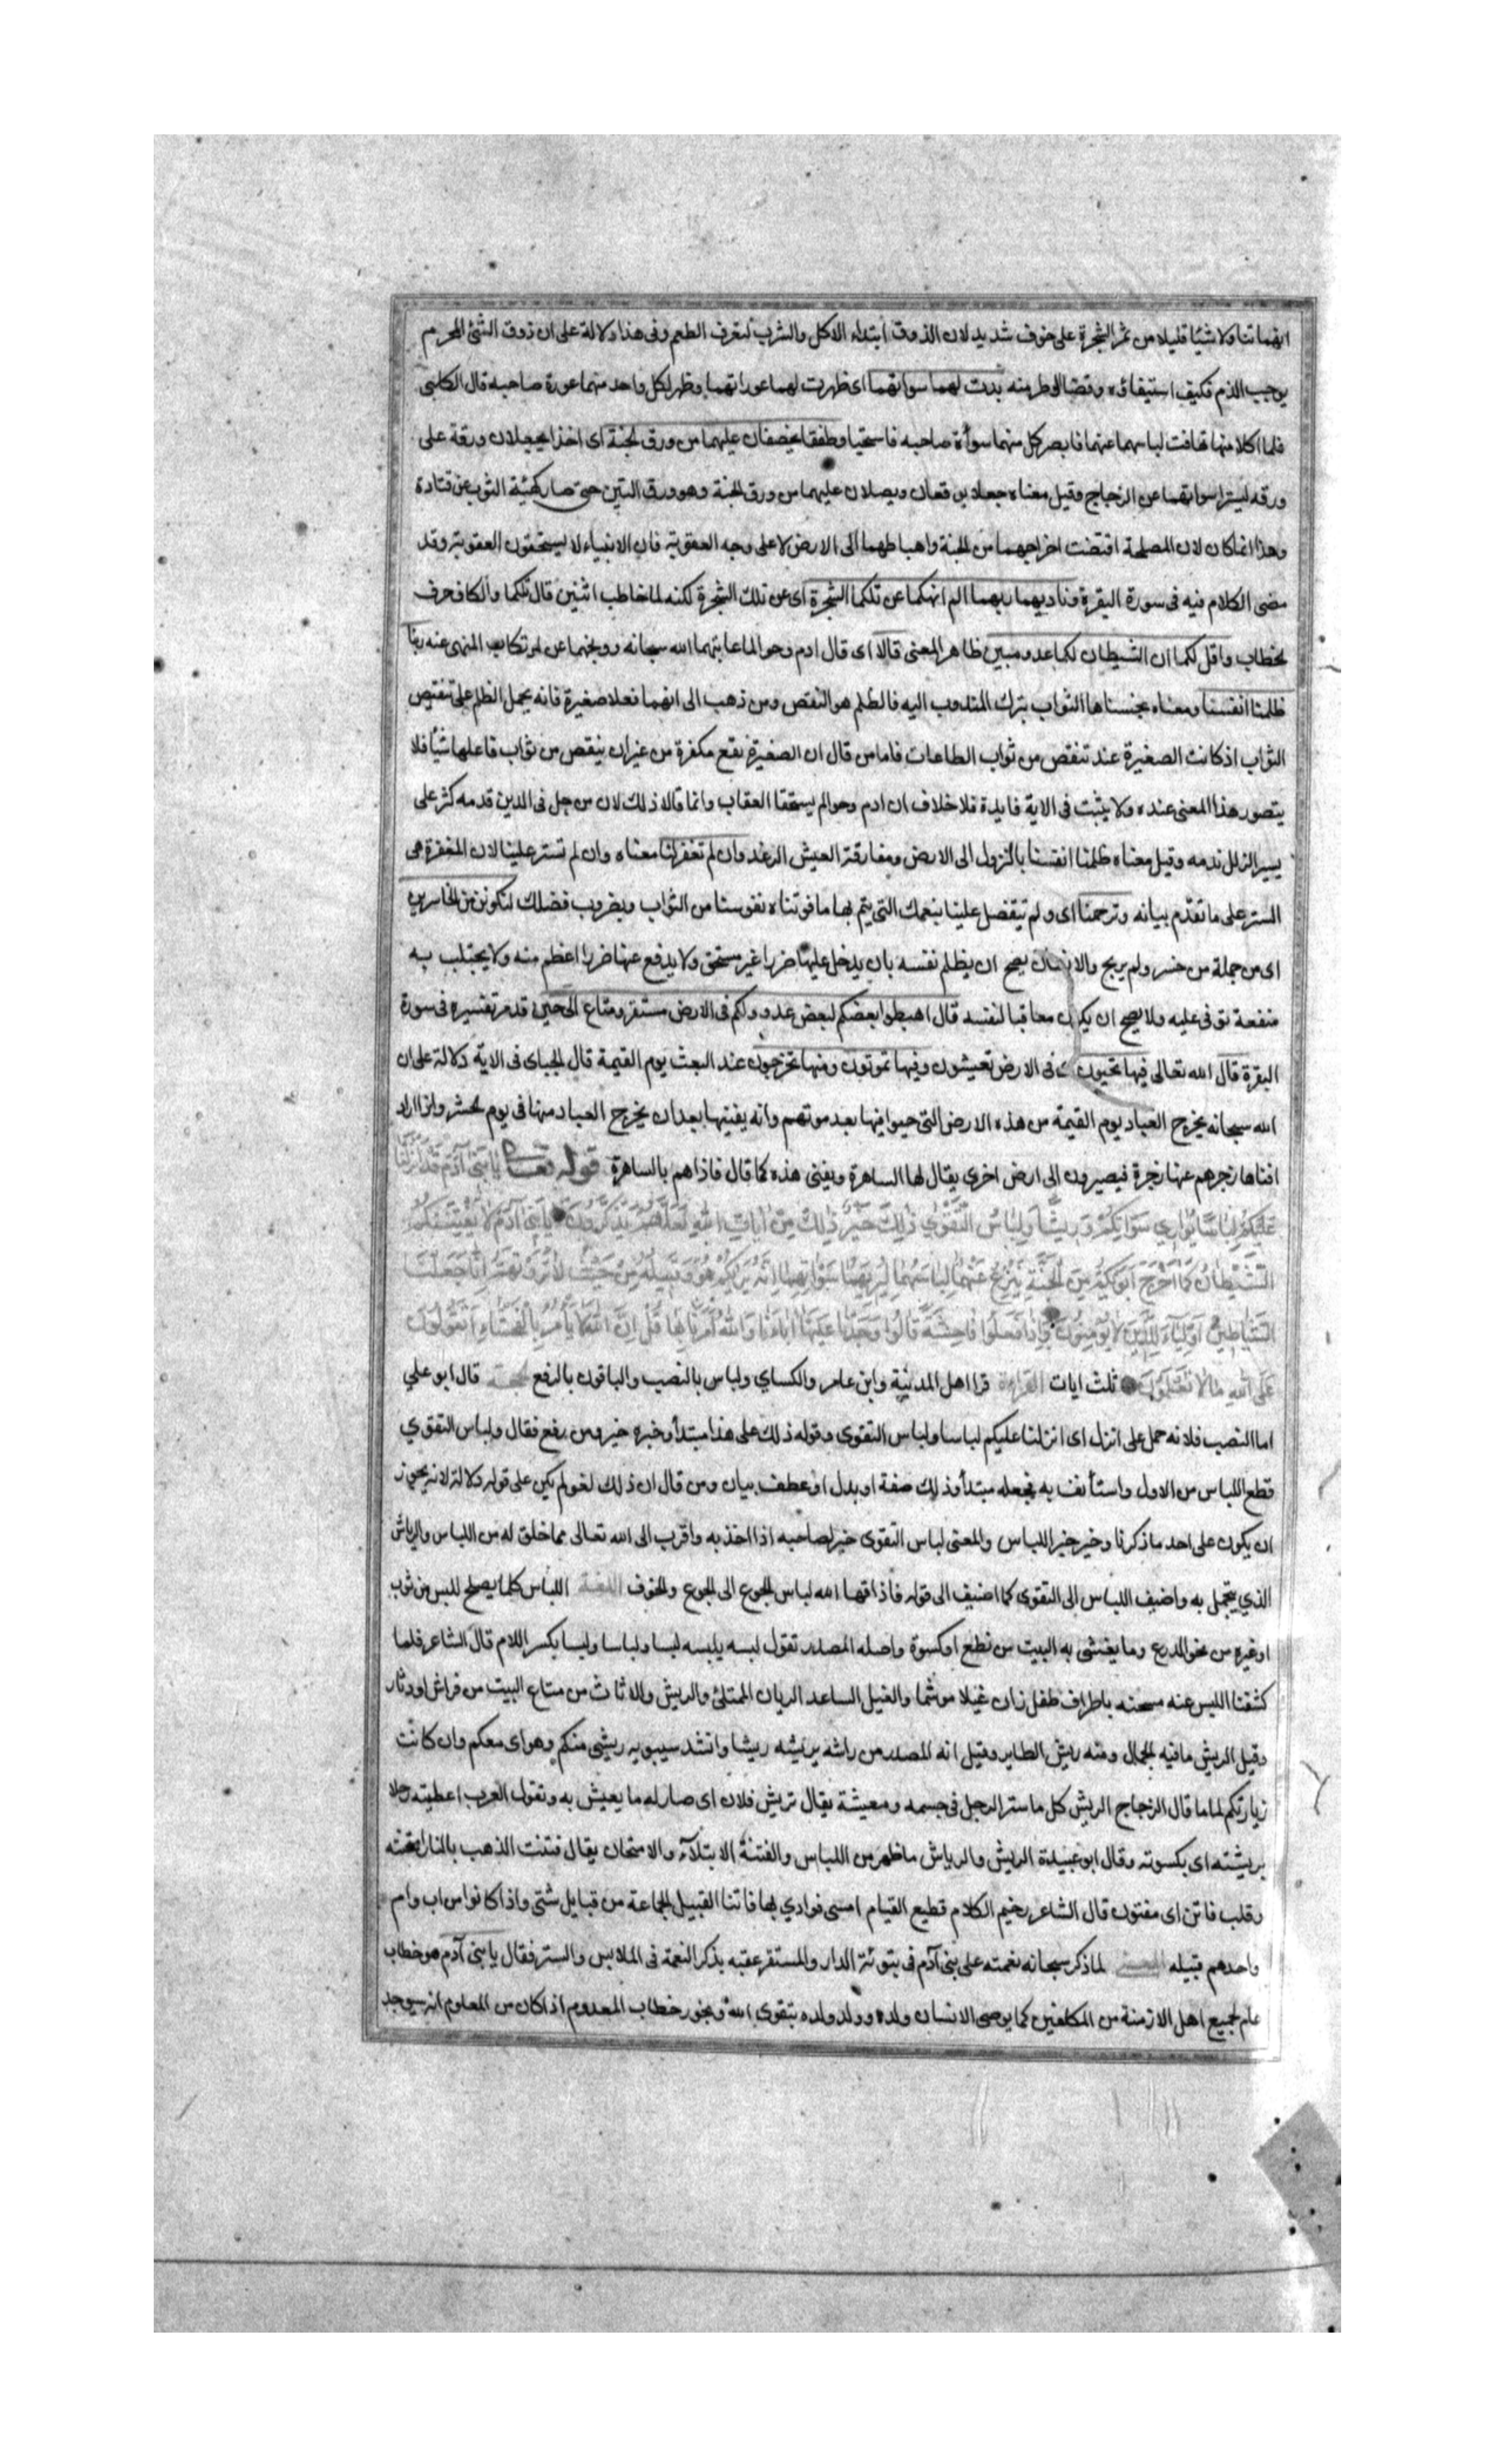 انهما تناولا شيئا قليلا من ثمر الشجرة على خوف شديد لان الذوق ابتداء الاكل والشرب لتعرف الطعم وفى هذا دلالة على ان ذوق الشئ المحرم
يوجب الذم فكيف استيفاؤه وقضا الوطر منه بدت لهما سواتهما اى ظهرت لهما عوراتهما وظهر لكل واحد منهما عورة صاحبه قال الكلبى
فلما اكلا منها تهافت لباسهما عنهما فابصر كل منهما سوأة صاحبه فاستحيا وطفقا يخصفان عليهما من ورق الجنة اى اخذا يجعلان ورقة على
ورقه ليسترا سواتهما عن الزجاج وقيل معناه جعلا يرقعان ويصلان عليهما من ورق الجنة وهو ورق التين حتى صار كهيئة الثوب عن قتادة
وهذا انما كان لان المصلحة اقتضت اخراجهما من الجنة واهباطهما الى الارض لا على وجه العقوبة فان الانبياء لا يستحقون العقوبة وقد
مضى الكلام فيه فى سورة البقرة وناديهما ربهما الم انهكما عن تلكما الشجرة اى عن تلك الشجرة لكنه لما خاطب اثنين قال تلكما والكاف حرف
لخطاب واقل لكما ان الشيطان لكما عدو مبين ظاهر المعنى قالا اى قال ادم وحوا لما عاتبهما الله سبحانه ووبخهما عن ارتكاب المنهى عنه ربنا
ظلمنا انفسنا ومعناه بخسناها الثواب بترك المندوب اليه فالظلم هو النقص ومن ذهب الى انهما فعلا صغيرة فانه يحمل الظلم على تنقيص
الثواب اذ كانت الصغيرة عند تنقص من ثواب الطاعات فاما من قال ان الصغيرة تقع مكفرة من غير ان ينقص من ثواب فاعلها شيأ فلا
يتصور هذا المعنى عنده ولا يثبت فى الاية فايدة فلا خلاف ان ادم وحوا لم يستحقا العقاب وانما قالا ذلك لان من جل فى الدين قدمه كثر على
يسير الزلل ندمه وقيل معناه ظلمنا انفسنا بالنزول الى الارض ومفارقة العيش الرغد وان لم تغفر لنا معناه وان لم تستر علينا لان المغفرة هى
الستر على ما تقدم بيانه وترحمنا اى ولم تتفضل علينا بنعمك التى يتم بها ما فوتناه نفوسنا من الثواب وبضروب فضلك لنكونن من الخاسرين
اى من جملة من خسر ولم يربح والانسان يصح ان يظلم نفسه بان يدخل عليها ضررا غير مستحق ولا يدفع عنها ضررا اعظم منه ولا يجتلب به
منفعة توفى عليه ولا يصح ان يكون معاقبا لنفسه قال اهبطوا بعضكم لبعض عدو ولكم فى الارض مستقر ومتاع الى حين قد مر تفسيره فى سورة
البقرة قال الله تعالى فيها تحيون فى الارض تعيشون وفيها تموتون ومنها تخرجون عند البعث يوم القيمة قال الجباى فى الاية دلالة على ان
الله سبحانه يخرج العباد يوم القيمة من هذه الارض التى حيوا فيها بعد موتهم وانه يفنيها بعد ان يخرج العباد منها فى يوم لحشر واذا اراد
افناها زجرهم عنها زجرة فيصيرون الى ارض اخرى يقال لها الساهرة ويفنى هذه كما قال فاذا هم بالساهرة قوله تعالى يا بنى آدم قد انزلنا
عليكم لباسا يوارى سواتكم وريشا ولباس التقوى ذلك خير ذلك من ايات الله لعلهم يذكرون يا بنى آدم لا يفتننكم
الشيطان كما اخرج ابويكم من الجنة ينزع عنهما لباسهما ليريهما سواتهما انه يريكم هو وقبيله من حيث لا ترونهم انا جعلنا
الشياطين اولياء للذين لا يؤمنون واذا فعلوا فاحشة قالوا وجدنا عليها اباءنا والله امرنا بها قل ان الله لا يأمر بالفحشاء اتقولون
على الله ما لا تعلمون ثلث ايات القراءة قرا اهل المدينة وابن عامر والكساي ولباس بالنصب والباقون بالرفع الحجة قال ابو علي
اما النصب فلانه حمل على انزل اى انزلنا عليكم لباسا ولباس التقوى وقوله ذلك على هذا مبتدأ وخبره خير ومن رفع فقال ولباس التقوي
قطع اللباس من الاول واستأنف به فجعله مبتدأ وذلك صفة او بدل او عطف بيان ومن قال ان ذلك لغو لم يكن على قوله دلالة لانه يجوز
ان يكون على احد ما ذكرنا وخير خبر اللباس والمعنى لباس التقوى خير لصاحبه اذا اخذ به واقرب الى الله تعالى مما خلق له من اللباس والرياش
الذي يتجمل به واضيف اللباس الى التقوى كما اضيف الى قوله فاذاقها الله لباس الجوع الى الجوع والخوف اللغة اللباس كلما يصلح للبس من ثوب
او غيره من نحو الدرع وما يغشى به البيت من نطع او كسوة واصله المصدر تقول لبسه يلبسه لبسا ولباسا ولبسا بكسر اللام قال الشاعر فلما
كشفنا اللبس عنه مسحنه باطراف طفل زان غيلا موشما والغيل الساعد الريان الممتلئ والريش والاثاث من متاع البيت من فراش او دثار
وقيل الريش ما فيه الجمال ومنه ريش الطاير وقيل انه المصدر من راشه يريشه ريشا وانشد سيبويه ريشى منكم وهواى معكم وان كانت
زيارتكم لماما قال الزجاج الريش كل ما ستر الرجل فى جسمه ومعيشة يقال تريش فلان اى صار له ما يعيش به وتقول العرب اعطيته رحلا
بريشته اى بكسوته وقال ابو عبيدة الريش والرياش ما ظهر من اللباس والفتنة الابتلآء والامتحان يقال فتنت الذهب بالنار امتحنته
وقلب فاتن اى مفتون قال الشاعر رخيم الكلام قطيع القيام امسى فوادي بها فاتنا القبيل الجماعة من قبايل شتى واذا كانوا من اب وام
واحدهم قبيله المعنى لما ذكر سبحانه نعمته على بنى آدم فى تبوئة الدار والمستقر عقبه بذكر النعمة فى الملابس والستر فقال يا بنى آدم هو خطاب
عام لجميع اهل الازمنة من المكلفين كما يوصى الانسان ولده وولد ولده بتقوى الله ويجوز خطاب المعدوم اذا كان من المعلوم انه سيوجد